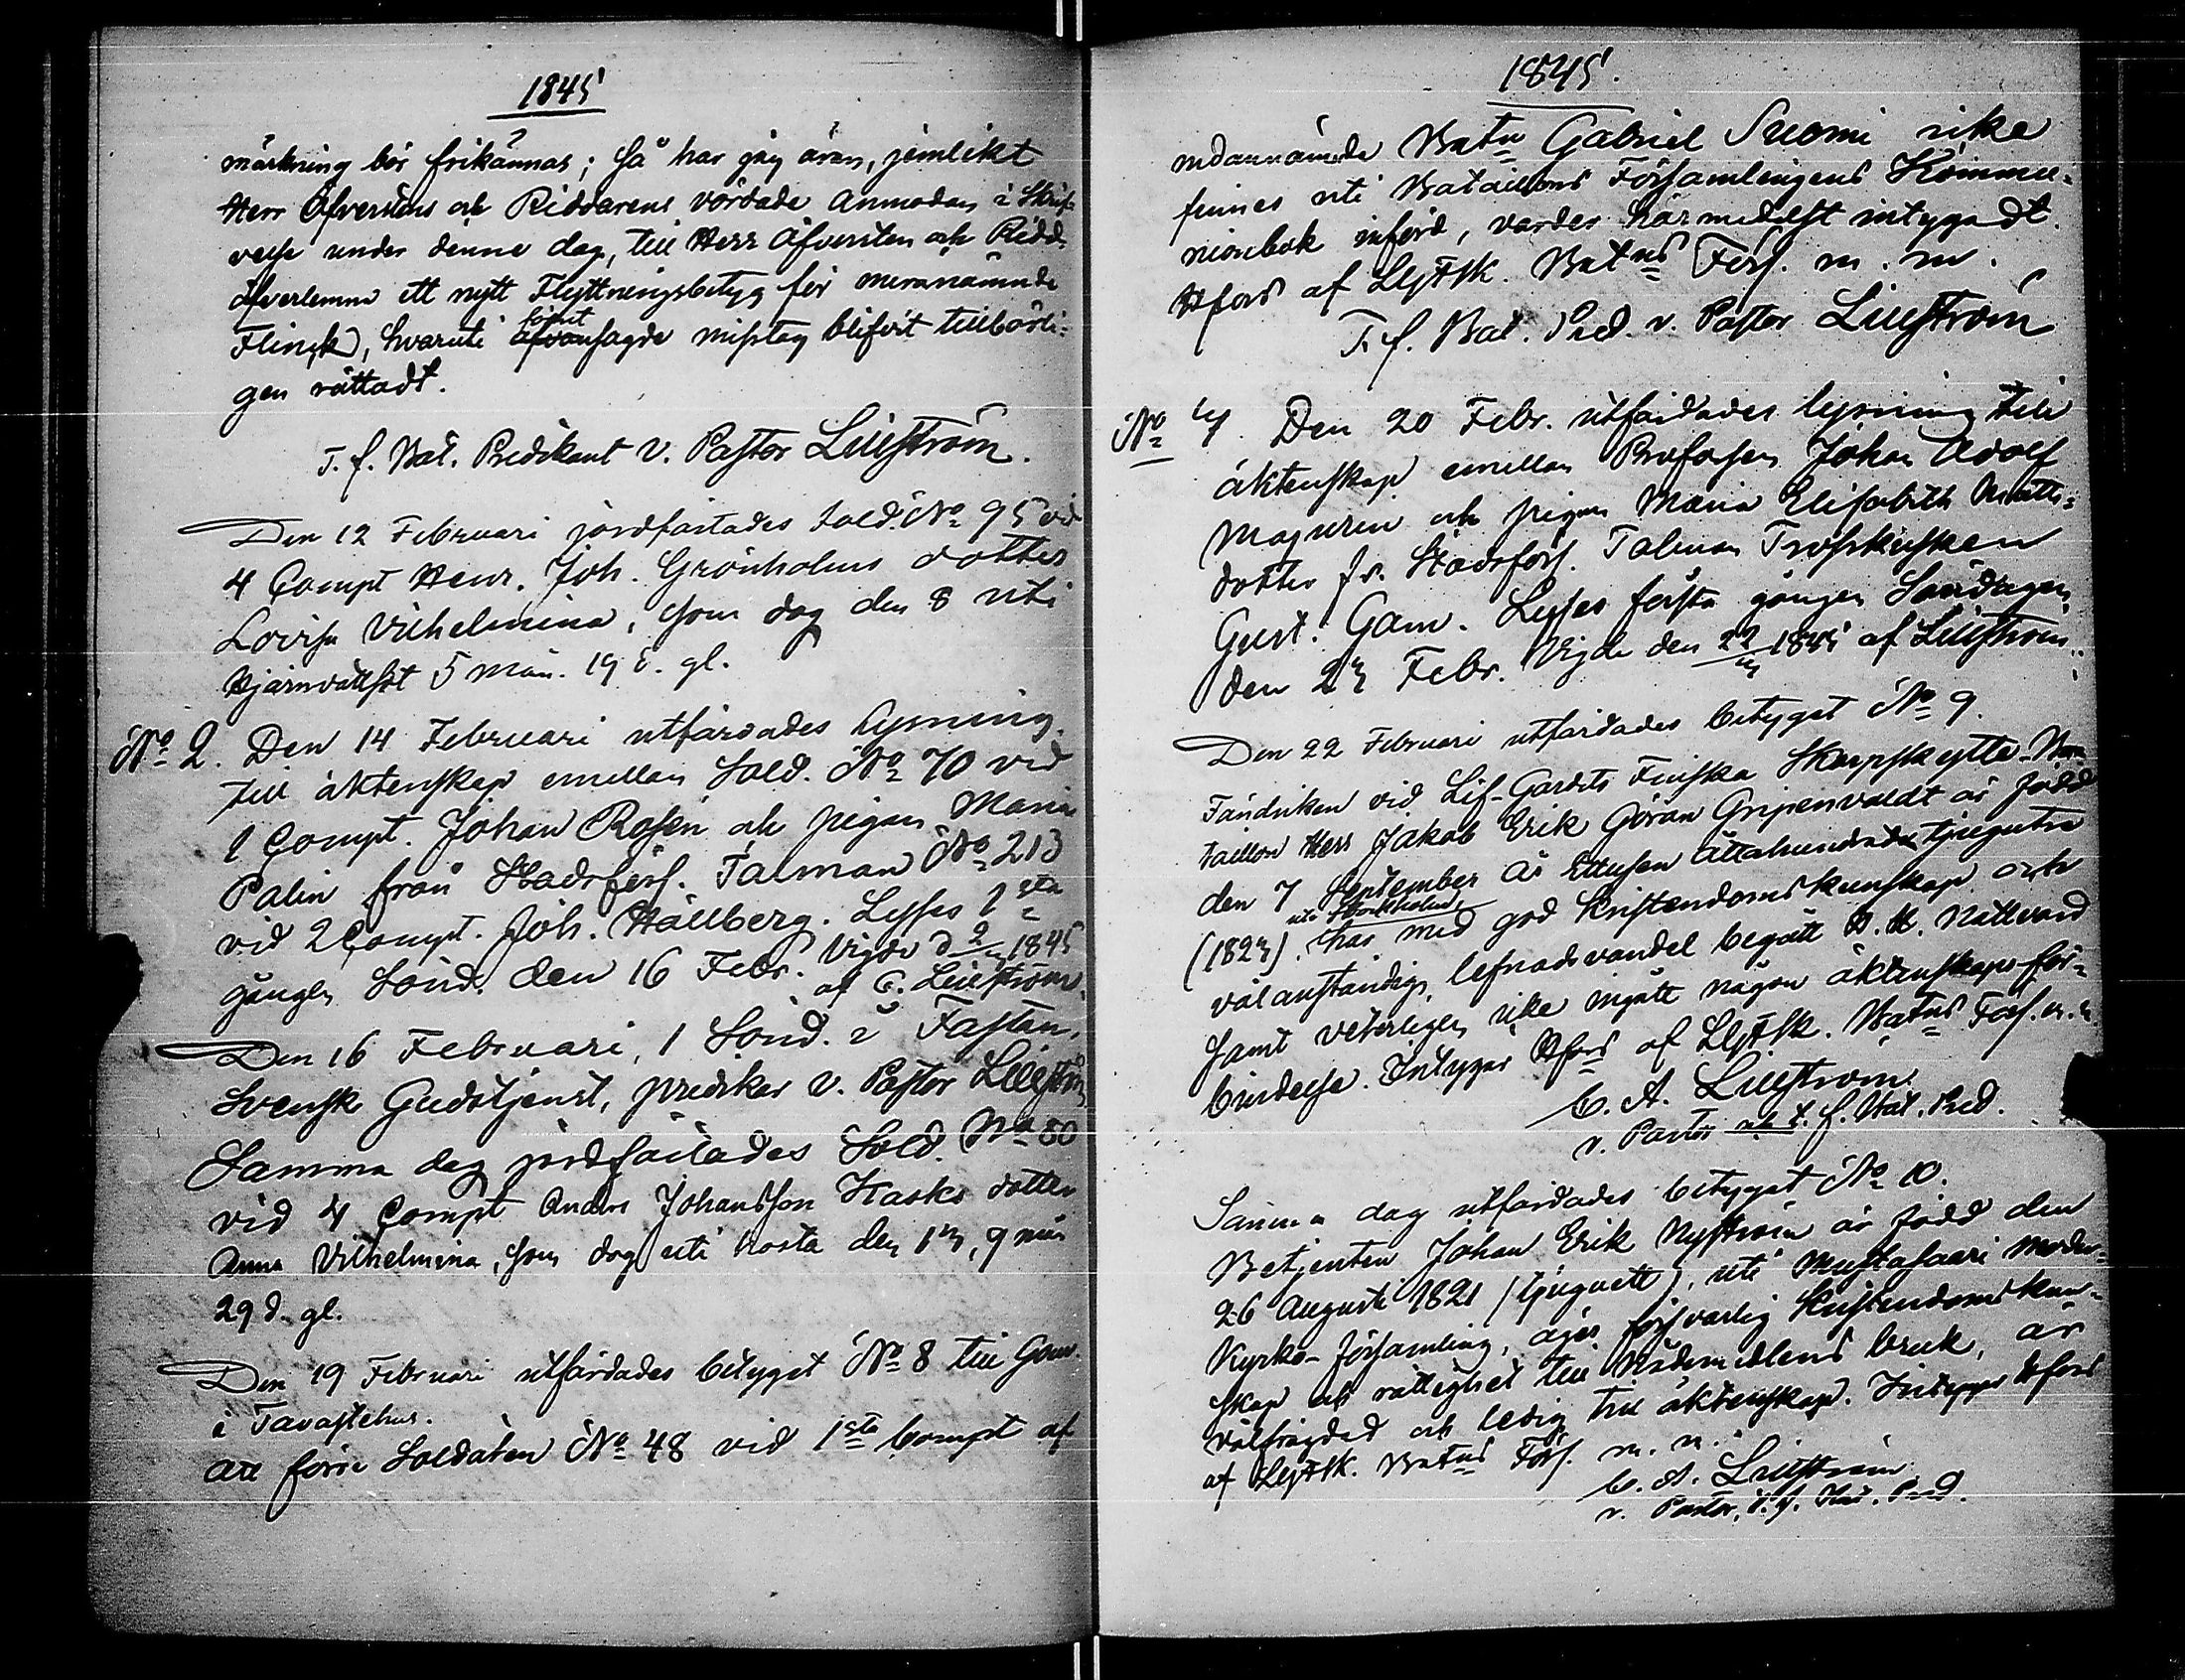 1845
märkning bör frikännas; så har jag äran, jemlikt
Herr Öfverstens och Riddarens vördade anmodan i Skrif-
velse under denne dag, till Herr Öfversten och Ridd.
öfverlemna ett nytt Flyttningsbetyg för meranämnde
Flinck, hvaruti först
ofvansagde misstag blifvit tillbörli-
gen rättadt.
T. f. Bat. Predikant v. Pastor Lilljström.
Den 12 Februari jordfästades Sold. No 95 vid
4 Compt Henr. Joh. Grönholms dotter
Lovisa Vilhelmina, som dog den 8 uti
Hjärnvattsot 5 mån. 19 d. gl.
No 2. Den 14 Februari utfärdades lysning
till äktenskap emellan Sold. No 70 vid
1 Compt. Johan Rosén och pigan Maria
Palin från Stadsförs. Talman No 213
vid 2 Compt. Joh. Hållberg. Lyses 1sta
gången Sönd. den 16 Febr. Vigde d 2/ 1845
af C. Lilljström.
Den 16 Februari, 1 Sönd. i Fastan,
Svensk Gudstjenst, prediker v. Pastor Lilljström
Samma dag jordfästades Sold. No 80
vid 4 Compt Anders Johansson Hasks dotter
Anna Vilhelmina, som dog uti hosta den, 9 mån
29 d. gl.
Den 19 Februari utfärdades betyget No 8 till Gouv.
i Tavastehus.
Att förre Soldaten No 48 vid 1sta Compt af
1845.
nedannämnde Batn Gabriel Suomi icke
finnes uti Bataillons Församlingens Kommu-
nionbok införd, vardes härmedelst intygadt.
Hfors af LgFSk. Batns Förs. m. m.
T. f. Bat. Pred. v. Pastor Lilljström
No Den 20 Febr. utfärdades lysning till
äktenskap emellan Profossen Johan Adolf
Magurin och pigan Maria Elisabeth Matts-
dotter fr. Stadsförs. Talman Trosskusken
Gust. Gam. Lyses första gången Söndagen
den 23 Febr. Vigde den 1845 af Lilljström.
Den 22 Februari utfärdades betyget No 9.
Fändriken vid Lif-Gardets Finska Skarpskytte-Ba-
taillon Herr Jakob Erik Göran Gripenvaldt är född
den 7 September år Ettusen åttahundrade tjugutre
uti Stockholm,
(1823). har med god Kristendomskunskap och
välanständig lefnadsvandel begått D. H. Nattvard
samt veterligen icke ingått någon äktenskaps för-
bindelse. Intygar Hfors af LgFSk. Batns Förs. m. m
C. A. Lilljström.
v. Pastor och t. f. Bat. Pred.
Samma dag utfärdades betyget No 10.
Betjenten Johan Erik Nyström är född den
26 Augusti 1821 (tjuguett), uti Mustasaari Moder-
Kyrko-Församling, äger försvarlig Kristendomskun-
skap och rättighet till Nådemedlens bruk, är
välfrägdad och ledig till äktenskap. Intygar Hfors
af LgFSk. Batns Förs. m. m.
C. A. Lilljström.
v. Pastor, t. f. Bat. Pred.